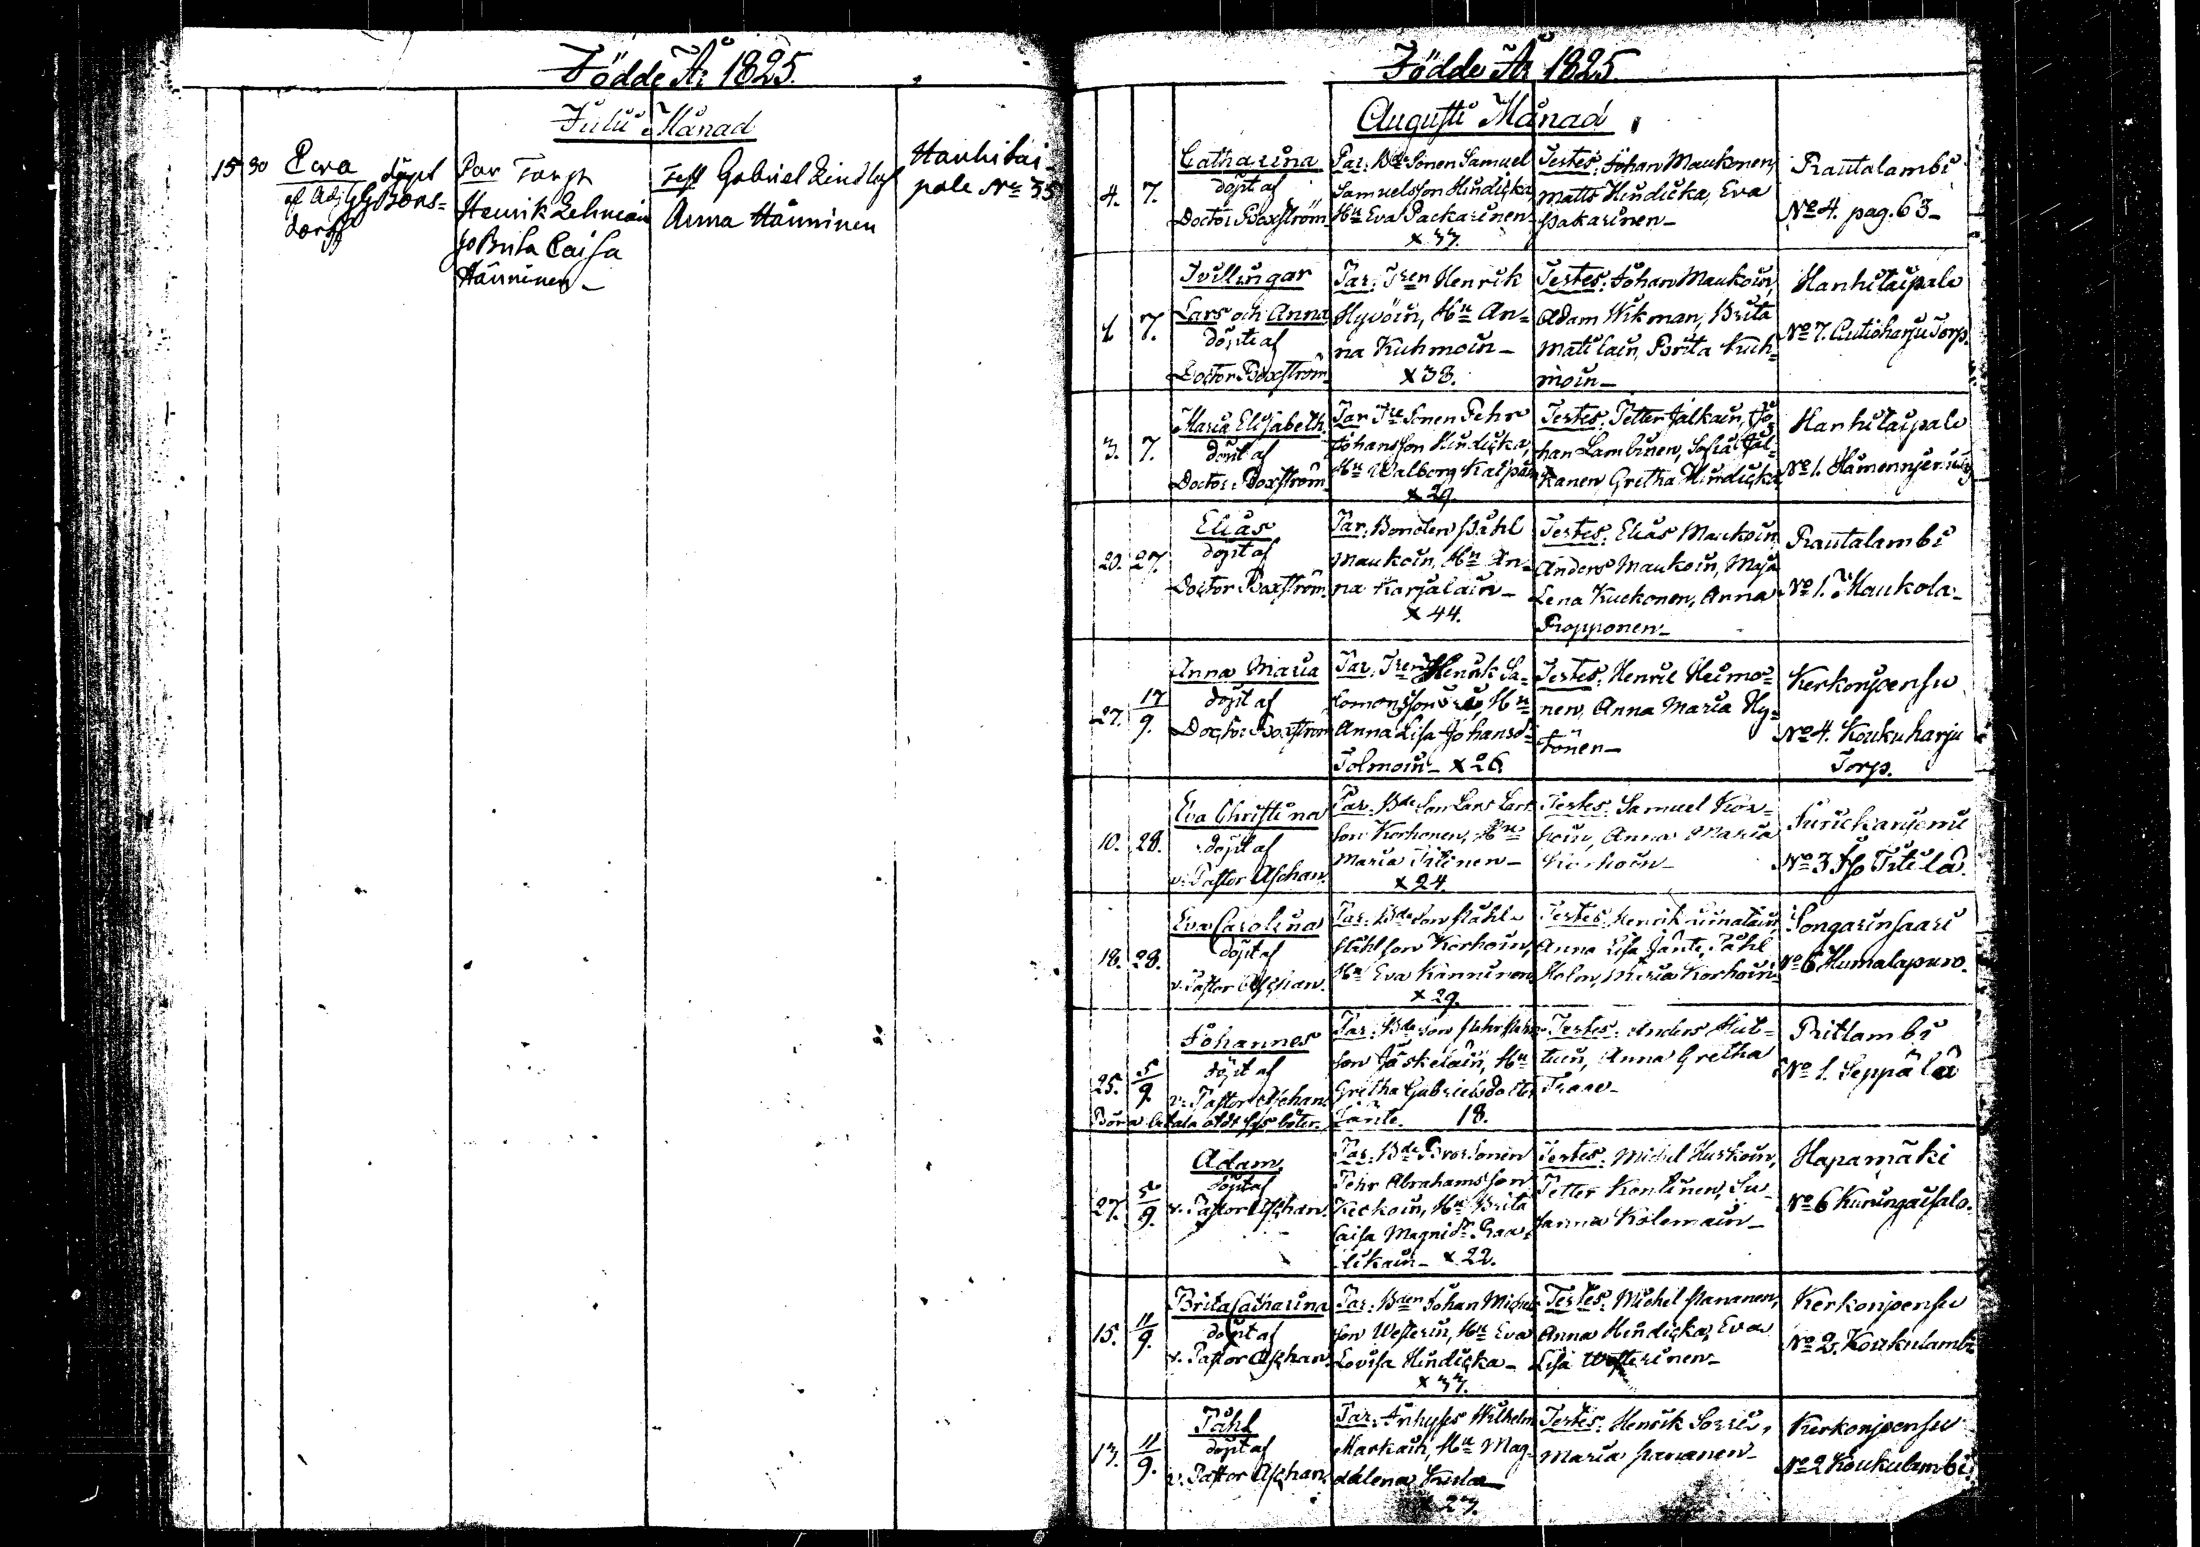 Födde År 1825.
Julii Månad
15 30 Eva döpt
af Adj GG Bons=
dorff
Par Torp
Henrik Lehmoin
ho Brita Caisa
Hänninen
Test Gabriel Lindlöf
Anna Hänninen
Hanhitai
pale No 35
Födde År 1825
Augusti Månad
4. 7.
Catharina
döpt af
Doctor Boxström
Par. Bde Sonen Samuel
Samuelsson Hindicka
Hu Eva Packarinen
x 37.
Testes. Johan Maukonen,
Matts Hindicka, Eva
Pakarinen
Rautalambi
No 4. pag. 63
7.
Tvillingar
Lars och Anna
döpte af
Doctor Boxström
Par. Tren Henrik
Hyvöin, Hu An=
na Kuhmoin
x 38.
Testes. Johan Maukoin,
Adam Wikman, Brita
Matilain, Brita Kuh
moin
Hanhitaipale
No 7. Autioharju Torp.
3. 7.
Maria Elisabeth
döpt af
Doctor Boxström
Par Tre Sonen Pehr
Johansson Hindicka,
Hu Walborg Kaipain
x 29.
Testes. Petter Jalkain, Jo
han Lambinen, Sofia Jal
kanen Gretha Hindicka
Hanhitaipale
No 1.
20. 27.
Elias
döpt af
Doctor Boxström
Par. Bonden Påhl
Maukoin, Hu An
na Karjalain
x 44.
Testes. Elias Maukoin
Anders Maukoin, Maja
Lena Kuckonen, Anna
Propponen
Rautalambi
No 1. Maukola
27. 17/9.
Anna Maria
döpt af
Doctor Boxström
Par. Tren Henrik Sa
lomonsson Hu
Anna Lisa Johansdr
Tolmoin x 26
Testes. Henric Heimo=
nen, Anna Maria Hy=
tönen
Kerkonjoensu
No 4. Koukuharju
Torp.
10. 28.
Eva Christina
döpt af
v. Pastor Aschan.
Par. Bde Son Lars Lars
son Korhonen, Hu
Maria Titinen
x 24.
Testes. Samuel Kor=
hoin, Anna Maria
Korhoin
No 3 Titilä
18. 28.
Eva Carolina
döpt af
v. Pastor Aschan.
Par. Bde Son Påhl
Påhlson Korhoin,
Hu Eva Känninen
x 29.
Testes. Henrik Limatain
Anna Lisa Jänti, Påhl
Holm, Maria Korhoin
Songarinsaari
No 6 Humalapuro.
25. 5/9
Johannes
döpt af
v. Pastor Aschan
Böra betala
Par. Bde Son Pehr Pehr
son Jäskeläin, Hu
Gretha Gabrielsdotter
Jänti. 18.
Testes. Anders Hut=
tuin, Anna Gretha
Pitlambi
No 1. Seppälä
27. 5/9.
Adam
döpt af
v. Pastor Aschan.
Par. Bde Brorsonen
Pehr Abrahamsson
Keckoin, Hu Brita
Caisa Magnidr Raa
tikain x 22.
Testes. Michel Huskoin,
Petter Kontinen, Su
sanna Kolemain
Hapamäki
No 6 Kuningaisalo.
15. 11/9.
Brita Catharina
döpt af
v. Pastor Aschan.
Par. Bden Johan Michels
son Westerin, Hu Eva
Lovisa Hindicka
x 37.
Testes. Michel Pananen,
Anna Hindicka, Eva
Lisa Westerinen
Kerkonjoensu
No 2. Koukulambi
13. 11/9.
Påhl
döpt af
v. Pastor Aschan.
Par. Inhyses Wilhelm
Markain, Hu Mag
dalena
x 27.
Testes. Henrik Sorri,
Maria Pananen
Kerkonjoensu
No 2 Koukulambi